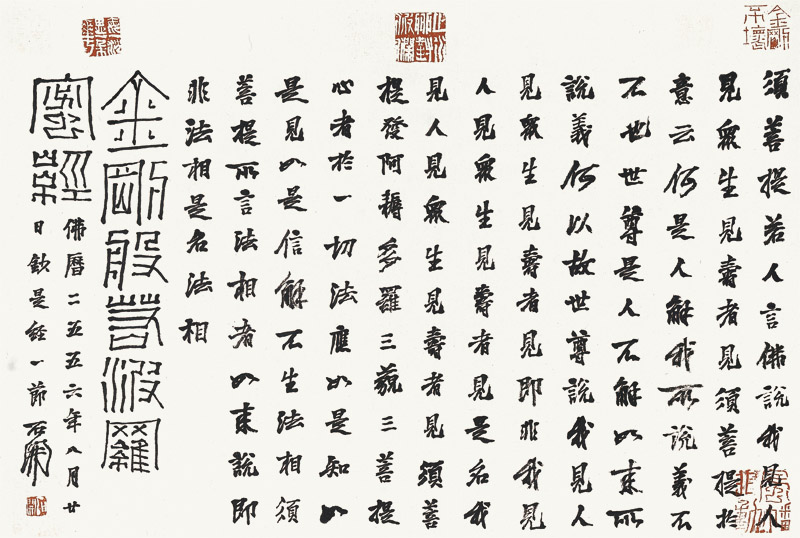 金剛不壞
須菩提若人言佛說我見人
見眾生見壽者見須菩提於
意云何是人解我所說義不
不也世尊是人不解如來所
說義何以故世尊說我見人
見眾生見壽者見即非我見
人見眾生見壽者見是名我
見人見眾生見壽者見須菩
提發阿耨多羅三藐三菩提
心者於一切法應如是知如
是見如是信解不生法相須
菩提所言法相者如來說即
非法相是名法相
金剛般若波羅
蜜經
佛曆二五五六年八月廿
日是經一節石開